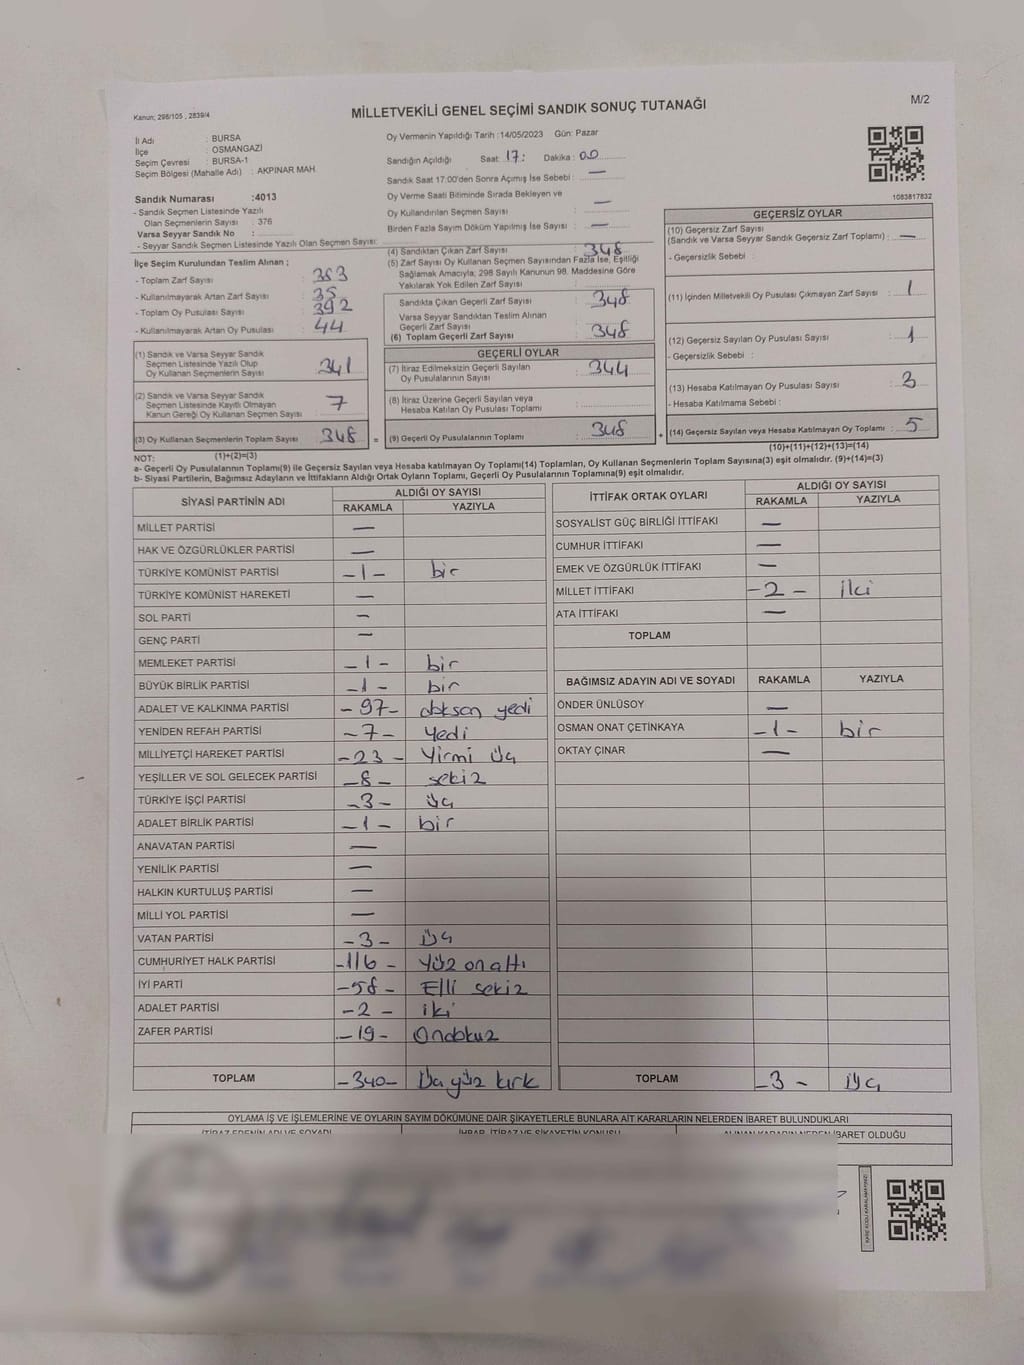 Kanun; 298/105 , 2839/4
MİLLETVEKİLİ GENEL SEÇİMİ SANDIK SONUÇ TUTANAĞI
M/2
İl Adı : BURSA
İlçe : OSMANGAZİ
Seçim Çevresi : BURSA-1
Seçim Bölgesi (Mahalle Adı) : AKPINAR MAH.
Oy Vermenin Yapıldığı Tarih :14/05/2023 Gün: Pazar
Sandığın Açıldığı Saat: 17: Dakika : 00
Sandık Saat 17:00'den Sonra Açımış İse Sebebi : —
Oy Verme Saati Bitiminde Sırada Bekleyen ve
Oy Kullandırılan Seçmen Sayısı : —
Birden Fazla Sayım Döküm Yapılmış İse Sayısı : —
1083817832
Sandık Numarası :4013
- Sandık Seçmen Listesinde Yazılı
Olan Seçmenlerin Sayısı : 376
Varsa Seyyar Sandık No :
- Seyyar Sandık Seçmen Listesinde Yazılı Olan Seçmen Sayısı:
İlçe Seçim Kurulundan Teslim Alınan ;
- Toplam Zarf Sayısı : 383
- Kullanılmayarak Artan Zarf Sayısı : 35
- Toplam Oy Pusulası Sayısı : 392
- Kullanılmayarak Artan Oy Pusulası : 44
(1) Sandık ve Varsa Seyyar Sandık
Seçmen Listesinde Yazılı Olup
Oy Kullanan Seçmenlerin Sayısı : 341
(2) Sandık ve Varsa Seyyar Sandık
Seçmen Listesinde Kayıtlı Olmayan
Kanun Gereği Oy Kullanan Seçmen Sayısı : 7
(3) Oy Kullanan Seçmenlerin Toplam Sayısı : 348 =
(4) Sandıktan Çıkan Zarf Sayısı : 348
(5) Zarf Sayısı Oy Kullanan Seçmen Sayısından Fazla İse, Eşitliği
Sağlamak Amacıyla; 298 Sayılı Kanunun 98. Maddesine Göre
Yakılarak Yok Edilen Zarf Sayısı :
Sandıkta Çıkan Geçerli Zarf Sayısı : 348
Varsa Seyyar Sandıktan Teslim Alınan
Geçerli Zarf Sayısı :
(6) Toplam Geçerli Zarf Sayısı : 348
GEÇERLİ OYLAR
(7) İtiraz Edilmeksizin Geçerli Sayılan
Oy Pusulalarının Sayısı : 344
(8) İtiraz Üzerine Geçerli Sayılan veya
Hesaba Katılan Oy Pusulası Toplamı :
(9) Geçerli Oy Pusulalarının Toplamı : 348 +
GEÇERSİZ OYLAR
(10) Geçersiz Zarf Sayısı
(Sandık ve Varsa Seyyar Sandık Geçersiz Zarf Toplamı) : —
- Geçersizlik Sebebi :
(11) İçinden Milletvekili Oy Pusulası Çıkmayan Zarf Sayısı : 1
(12) Geçersiz Sayılan Oy Pusulası Sayısı : 1
- Geçersizlik Sebebi :
(13) Hesaba Katılmayan Oy Pusulası Sayısı : 3
- Hesaba Katılmama Sebebi :
(14) Geçersiz Sayılan veya Hesaba Katılmayan Oy Toplamı : 5
NOT: (1)+(2)=(3)
(10)+(11)+(12)+(13)=(14)
a- Geçerli Oy Pusulalarının Toplamı(9) ile Geçersiz Sayılan veya Hesaba katılmayan Oy Toplamı(14) Toplamları, Oy Kullanan Seçmenlerin Toplam Sayısına(3) eşit olmalıdır. (9)+(14)=(3)
b- Siyasi Partilerin, Bağımsız Adayların ve İttifakların Aldığı Oyların Toplamı, Geçerli Oy Pusulalarının Toplamına(9) eşit olmalıdır.
SİYASİ PARTİNİN ADI ALDIĞI OY SAYISI
RAKAMLA YAZIYLA
MİLLET PARTİSİ —
HAK VE ÖZGÜRLÜKLER PARTİSİ —
TÜRKİYE KOMÜNİST PARTİSİ -1- bir
TÜRKİYE KOMÜNİST HAREKETİ —
SOL PARTİ —
GENÇ PARTİ —
MEMLEKET PARTİSİ -1- bir
BÜYÜK BİRLİK PARTİSİ -1- bir
ADALET VE KALKINMA PARTİSİ -97- doksan yedi
YENİDEN REFAH PARTİSİ -7- yedi
MİLLİYETÇİ HAREKET PARTİSİ -23- Yirmi üç
YEŞİLLER VE SOL GELECEK PARTİSİ -8- sekiz
TÜRKİYE İŞÇİ PARTİSİ -3- üç
ADALET BİRLİK PARTİSİ -1- bir
ANAVATAN PARTİSİ —
YENİLİK PARTİSİ —
HALKIN KURTULUŞ PARTİSİ —
MİLLİ YOL PARTİSİ —
VATAN PARTİSİ -3- üç
CUMHURİYET HALK PARTİSİ -116- yüz on altı
İYİ PARTİ -58- Elli sekiz
ADALET PARTİSİ -2- iki
ZAFER PARTİSİ -19- Ondokuz
TOPLAM -340- Üç yüz kırk
İTTİFAK ORTAK OYLARI ALDIĞI OY SAYISI
RAKAMLA YAZIYLA
SOSYALİST GÜÇ BİRLİĞİ İTTİFAKI —
CUMHUR İTTİFAKI —
EMEK VE ÖZGÜRLÜK İTTİFAKI —
MİLLET İTTİFAKI -2- iki
ATA İTTİFAKI —
TOPLAM
BAĞIMSIZ ADAYIN ADI VE SOYADI RAKAMLA YAZIYLA
ÖNDER ÜNLÜSOY —
OSMAN ONAT ÇETİNKAYA -1- bir
OKTAY ÇINAR —
TOPLAM -3- üç
OYLAMA İŞ VE İŞLEMLERİNE VE OYLARIN SAYIM DÖKÜMÜNE DAİR ŞİKAYETLERLE BUNLARA AİT KARARLARIN NELERDEN İBARET BULUNDUKLARI
İTİRAZ EDENİN ADI VE SOYADI İHBAR, İTİRAZ VE ŞİKAYETİN KONUSU ALINAN KARARIN NEDEN İBARET OLDUĞU